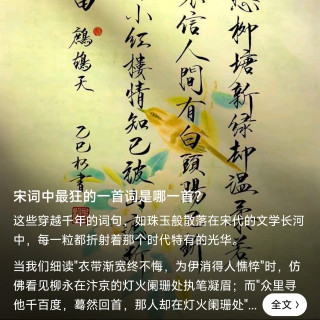 愁柳塘新綠却温柔若
信人間有白頭腸
小红樓情知已被
由
鷓鴣天
乙巳
宋词中最狂的一首词是哪一首?
这些穿越千年的词句，如珠玉般散落在宋代的文学长河
中，每一粒都折射着那个时代特有的光华。
当我们细读"衣带渐宽终不悔，为伊消得人憔悴"时，仿
佛看见柳永在汴京的灯火阑珊处执笔凝眉；而"众里寻
他千百度，蓦然回首，那人却在灯火阑珊处"... 全文 >